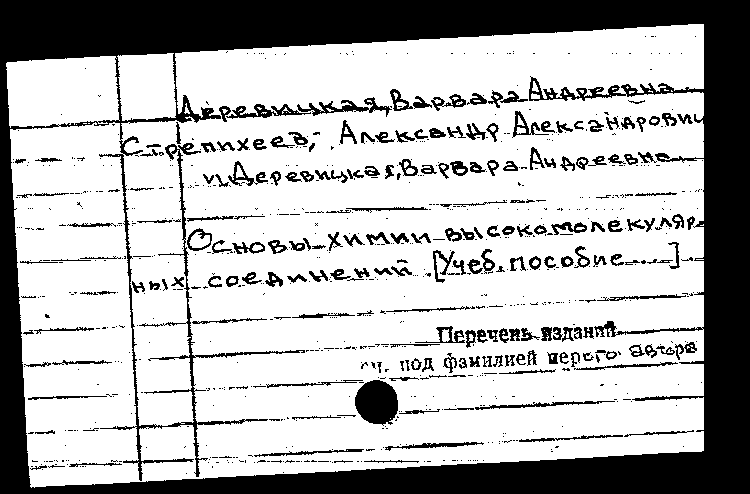 Деревицкая, Варвара Андреевна
Стрепихеев, Александр Александрович
и Деревицкая, Варвара Андреевна
Основы химии высокомолекуляр-
ных соединений. [Учеб. пособие ...]
Перечень изданий
см. под фамилией первого автора